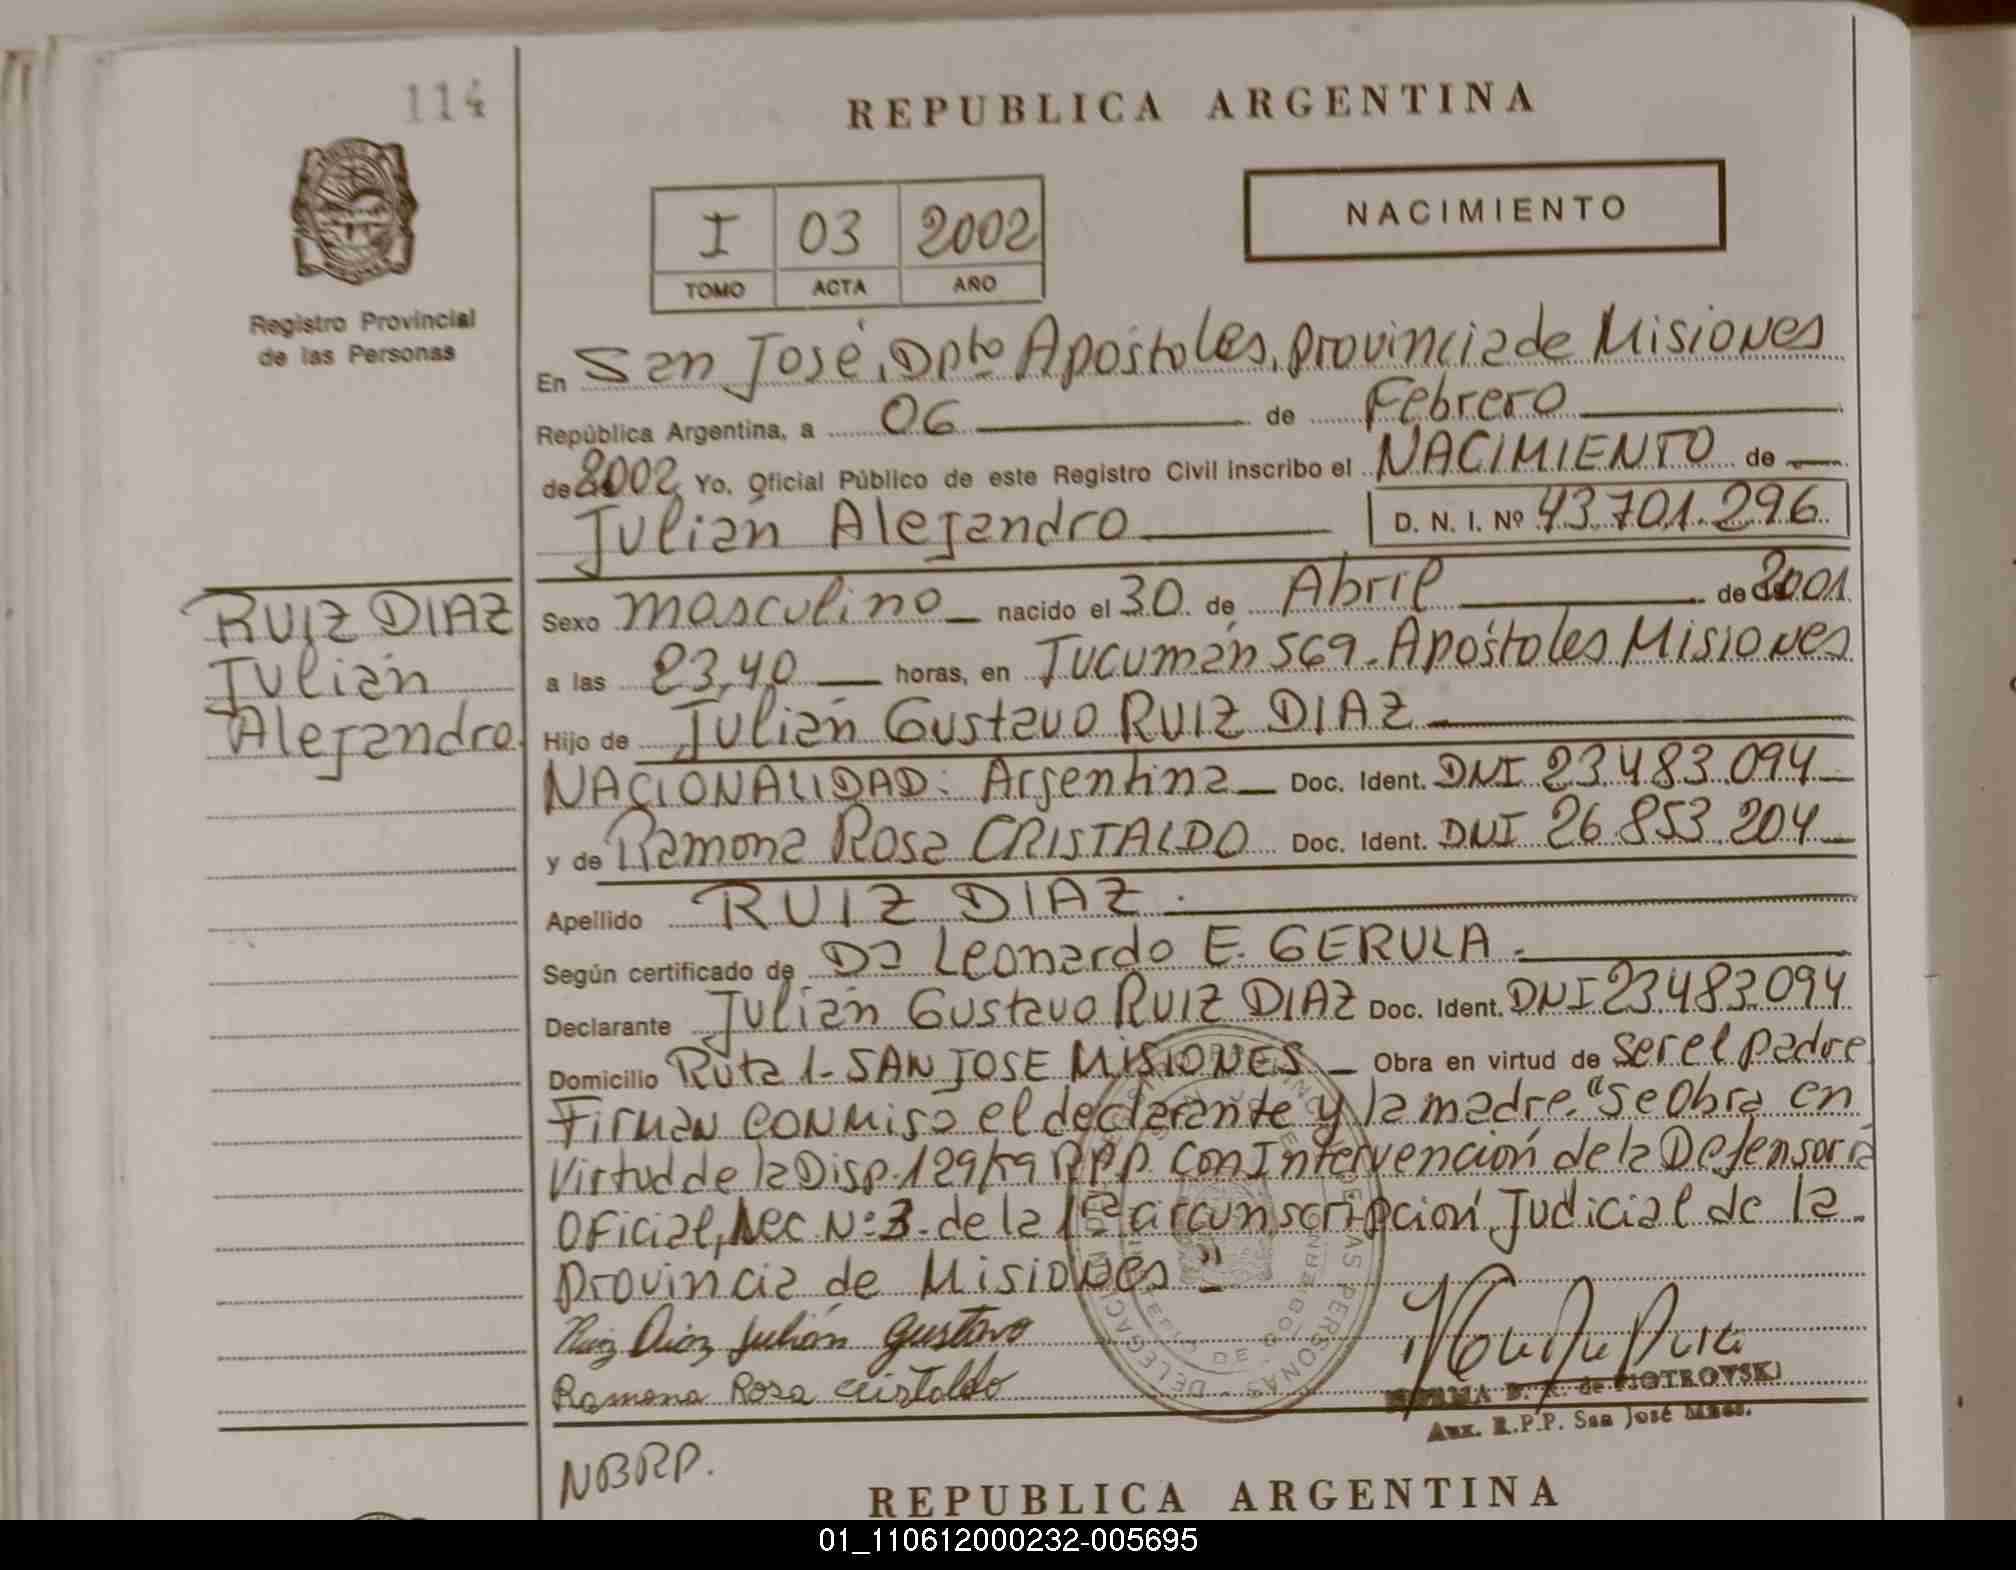 114
REPUBLICA ARGENTINA
NACIMIENTO
I 03 2002
TOMO ACTA AÑO
Registro Provincial
de las Personas
En San José, Dpto Apóstoles, provincia de Misiones
República Argentina, a 06 de Febrero
de 2002 Yo, Oficial Público de este Registro Civil inscribo el NACIMIENTO de
Julián Alejandro D. N. I. Nº 43.701.296
RUIZ DIAZ
Julián
Alejandro
Sexo masculino nacido el 30 de Abril de 2001
a las 23,40 horas, en Tucumán 569. Apóstoles Misiones
Hijo de Julián Gustavo RUIZ DIAZ
NACIONALIDAD: Argentina Doc. Ident. DNI 23.483.094
y de Ramona Rosa CRISTALDO Doc. Ident. DNI 26.853.204
Apellido RUIZ DIAZ.
Según certificado de Leonardo E. GERULA.
Declarante Julián Gustavo RUIZ DIAZ Doc. Ident. DNI 23.483.094
Domicilio Ruta 1- SAN JOSE MISIONES Obra en virtud de ser el padre
Firman conmigo el declarante y la madre. "Se Obra en
Virtud de la Disp. 129/59 RPP. Con Intervención de la Defensoría
Oficial, Nº: 3. de la 1ra circunscripción Judicial de la
provincia de Misiones"
Ruiz Diaz Julián Gustavo
Ramona Rosa Cristaldo
de PIOTROVSKI
Aux. R.P.P. San José Mnes.
NBRP.
REPUBLICA ARGENTINA
01_110612000232-005695